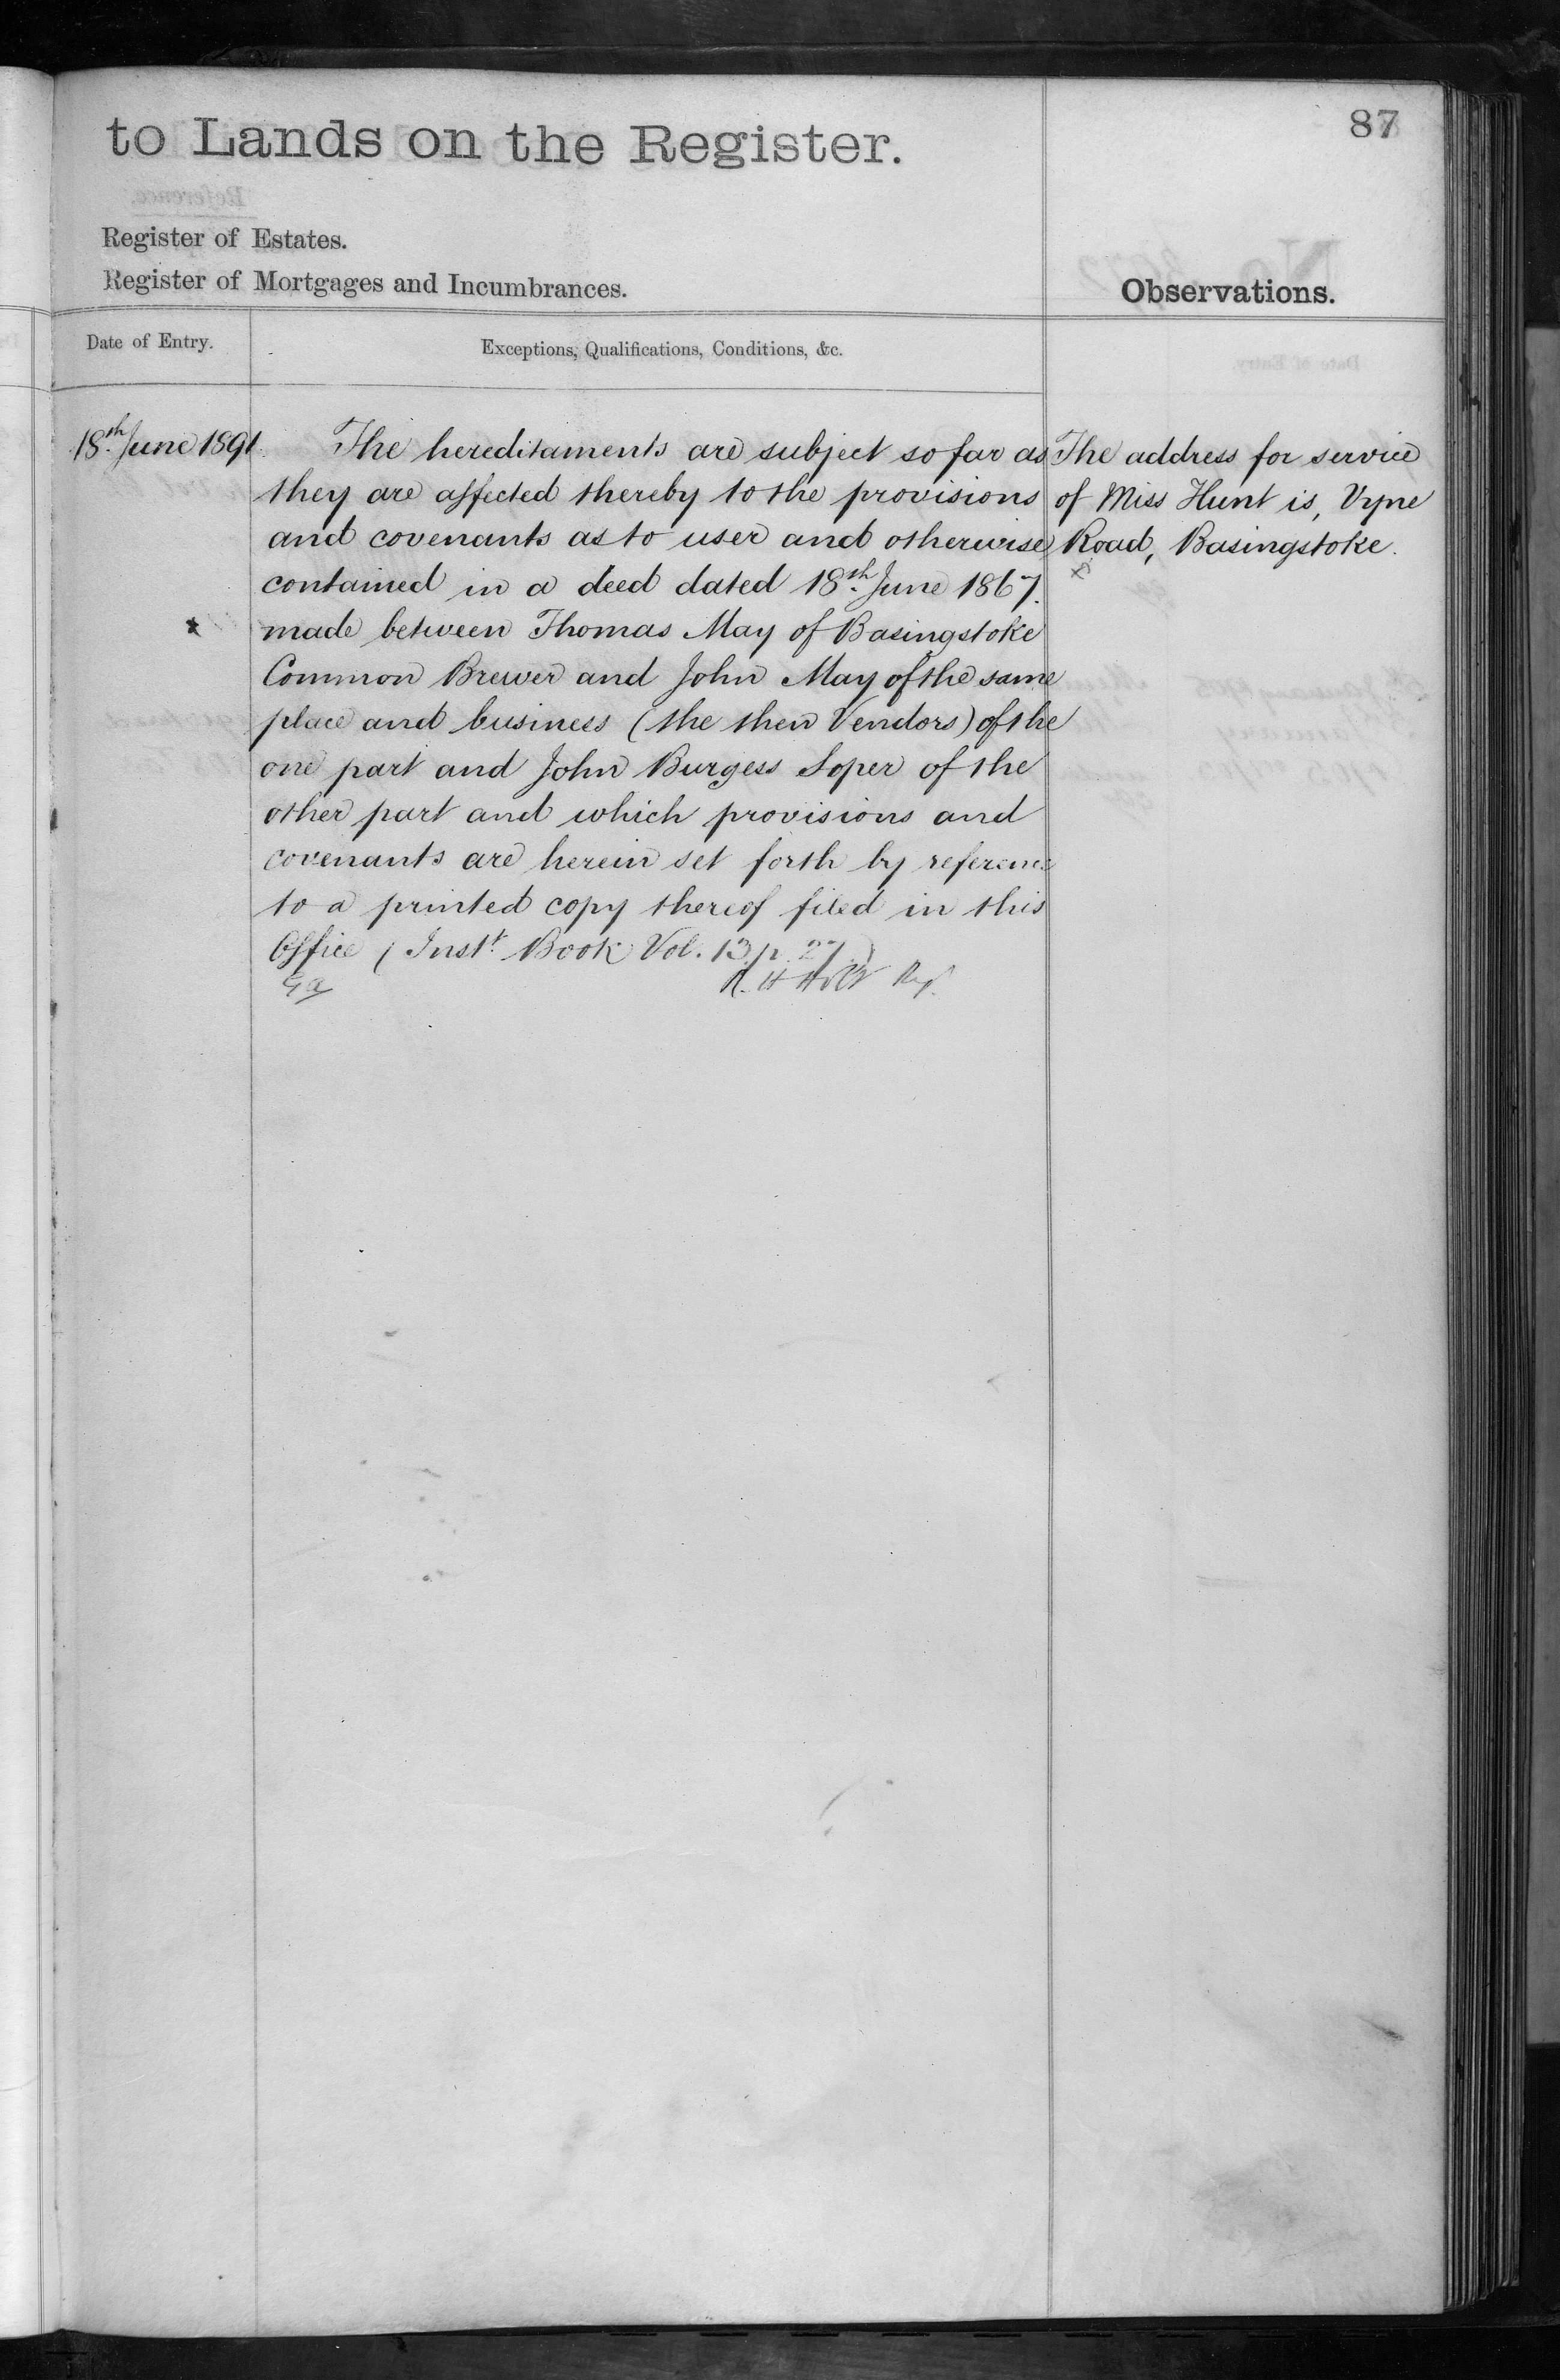 87
to Lands on the Register.
Register of Estates.
Register of Mortgages and Incumbrances.
Observations.
Date of Entry.
Exceptions, Qualifications, Conditions, &c.
18th June 1891
The hereditaments are subject so far as
they are affected thereby to the provisions
and covenants as to user and otherwise
contained in a deed dated 18th June 1867.
made between Thomas May of Basingstoke
Common Brewer and John May of the same
place and business (the then Vendors) of the
one part and John Burgess Soper of the
other part and which provisions and
covenants are herein set forth by reference
to a printed copy thereof filed in this
Office (Inst. Book Vol. 13. p. 27.)
R. H Holt Regr.
The address for service
of Miss Hunt is, Vyne
Road, Basingstoke.